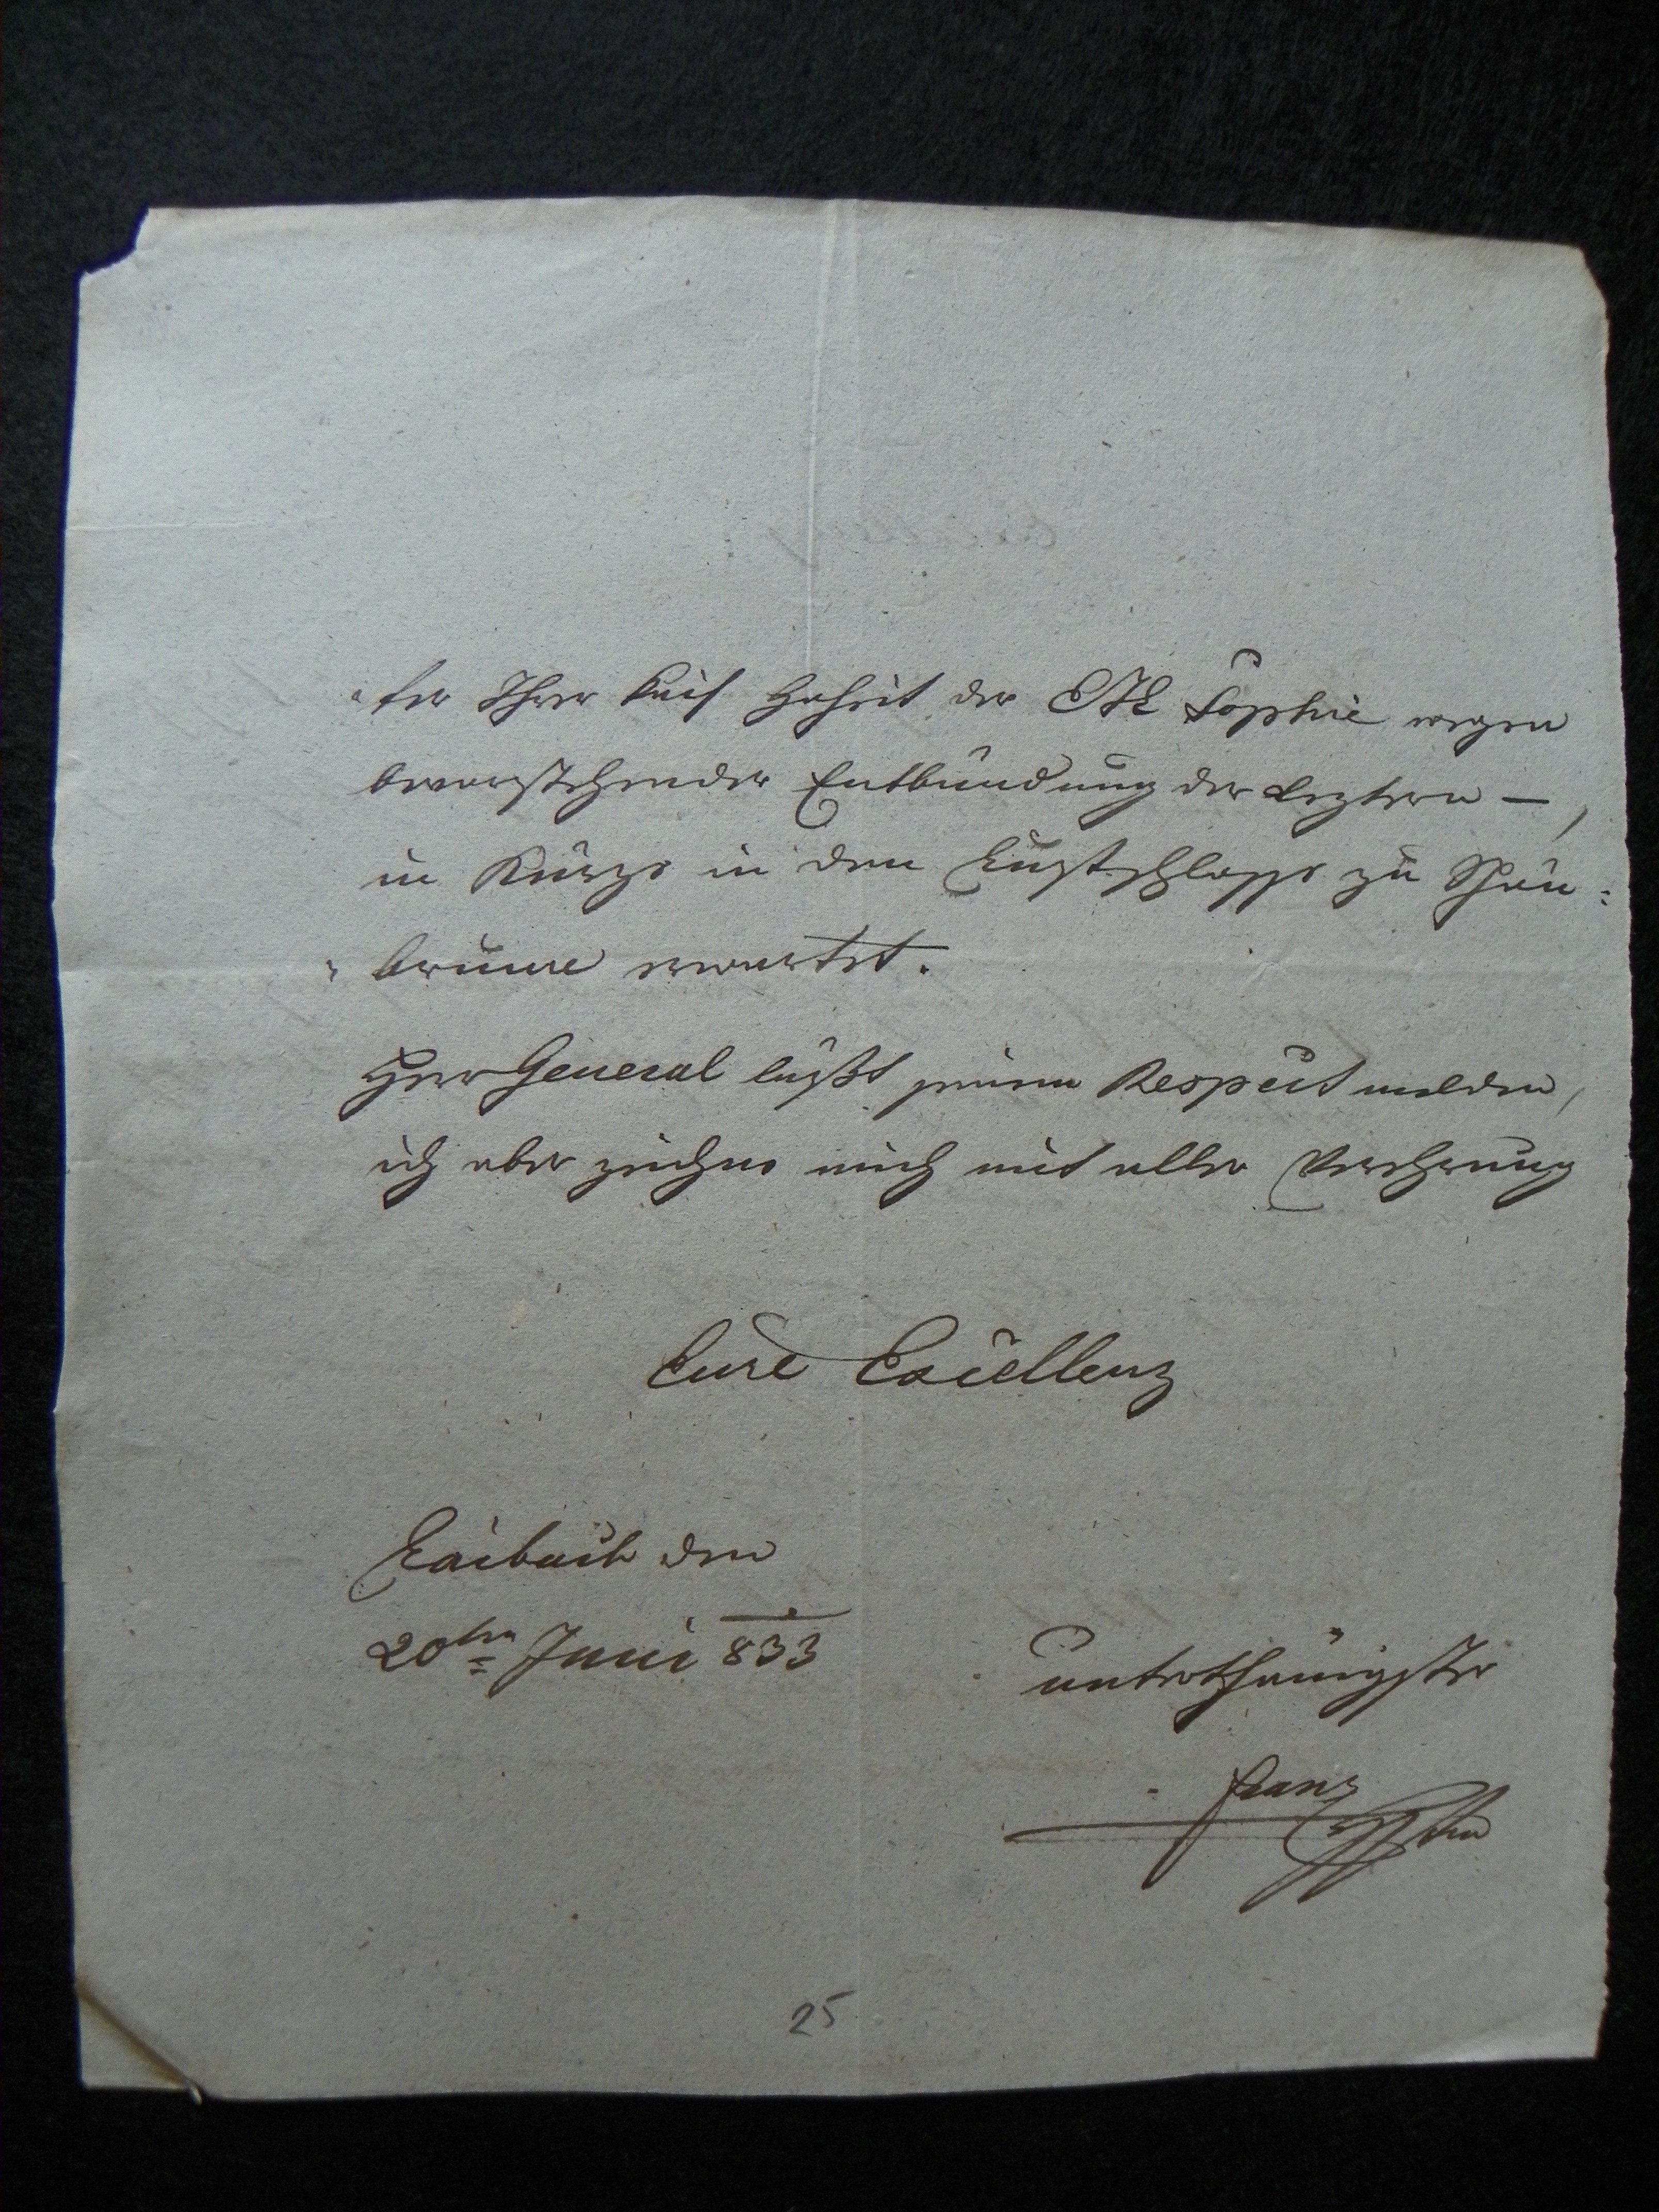 ster Ihrer Kais Hoheit der EH Sophie wegen
bevorstehender Entbindung der Leztern —,
in Kürze in dem Lustschlosse zu Schön=
=brunn erwartet.
Herr General läßt seinen Respect melden,
ich aber zeichne mich mit aller Verehrung
Eure Excellenz
Laibach den
20ten Juni 833
unterthänigster
Franz
25